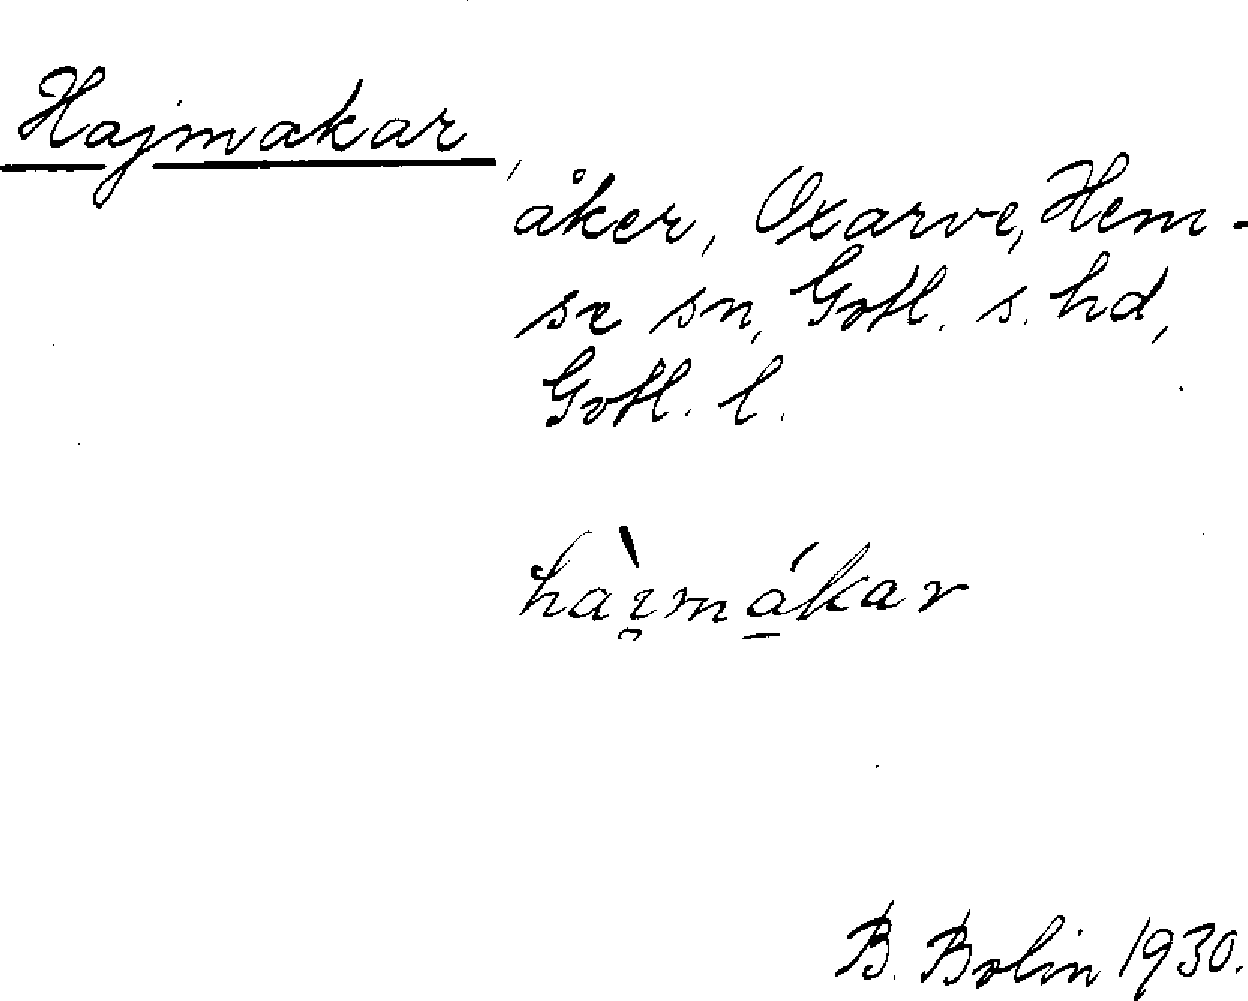 Hajmakar,
åker, Oxarve, Hem-
se sn, Gotl. s. hd,
Gotl. l.
hàı̯má̱kar
B. Bolin 1930.